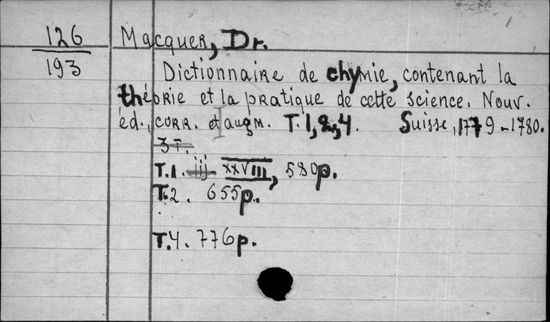 126
193
Macquer, Dr.
Dictionnaire de chymie, contenant la
théorie et la pratique de cette science. Nouv.
éd., corr. et augm. T. 1, 2, 4. Suisse, 1779-1780.
3 T.
T.1. iij XXVIII, 580p.
T.2. 655p.
T.4. 776p.